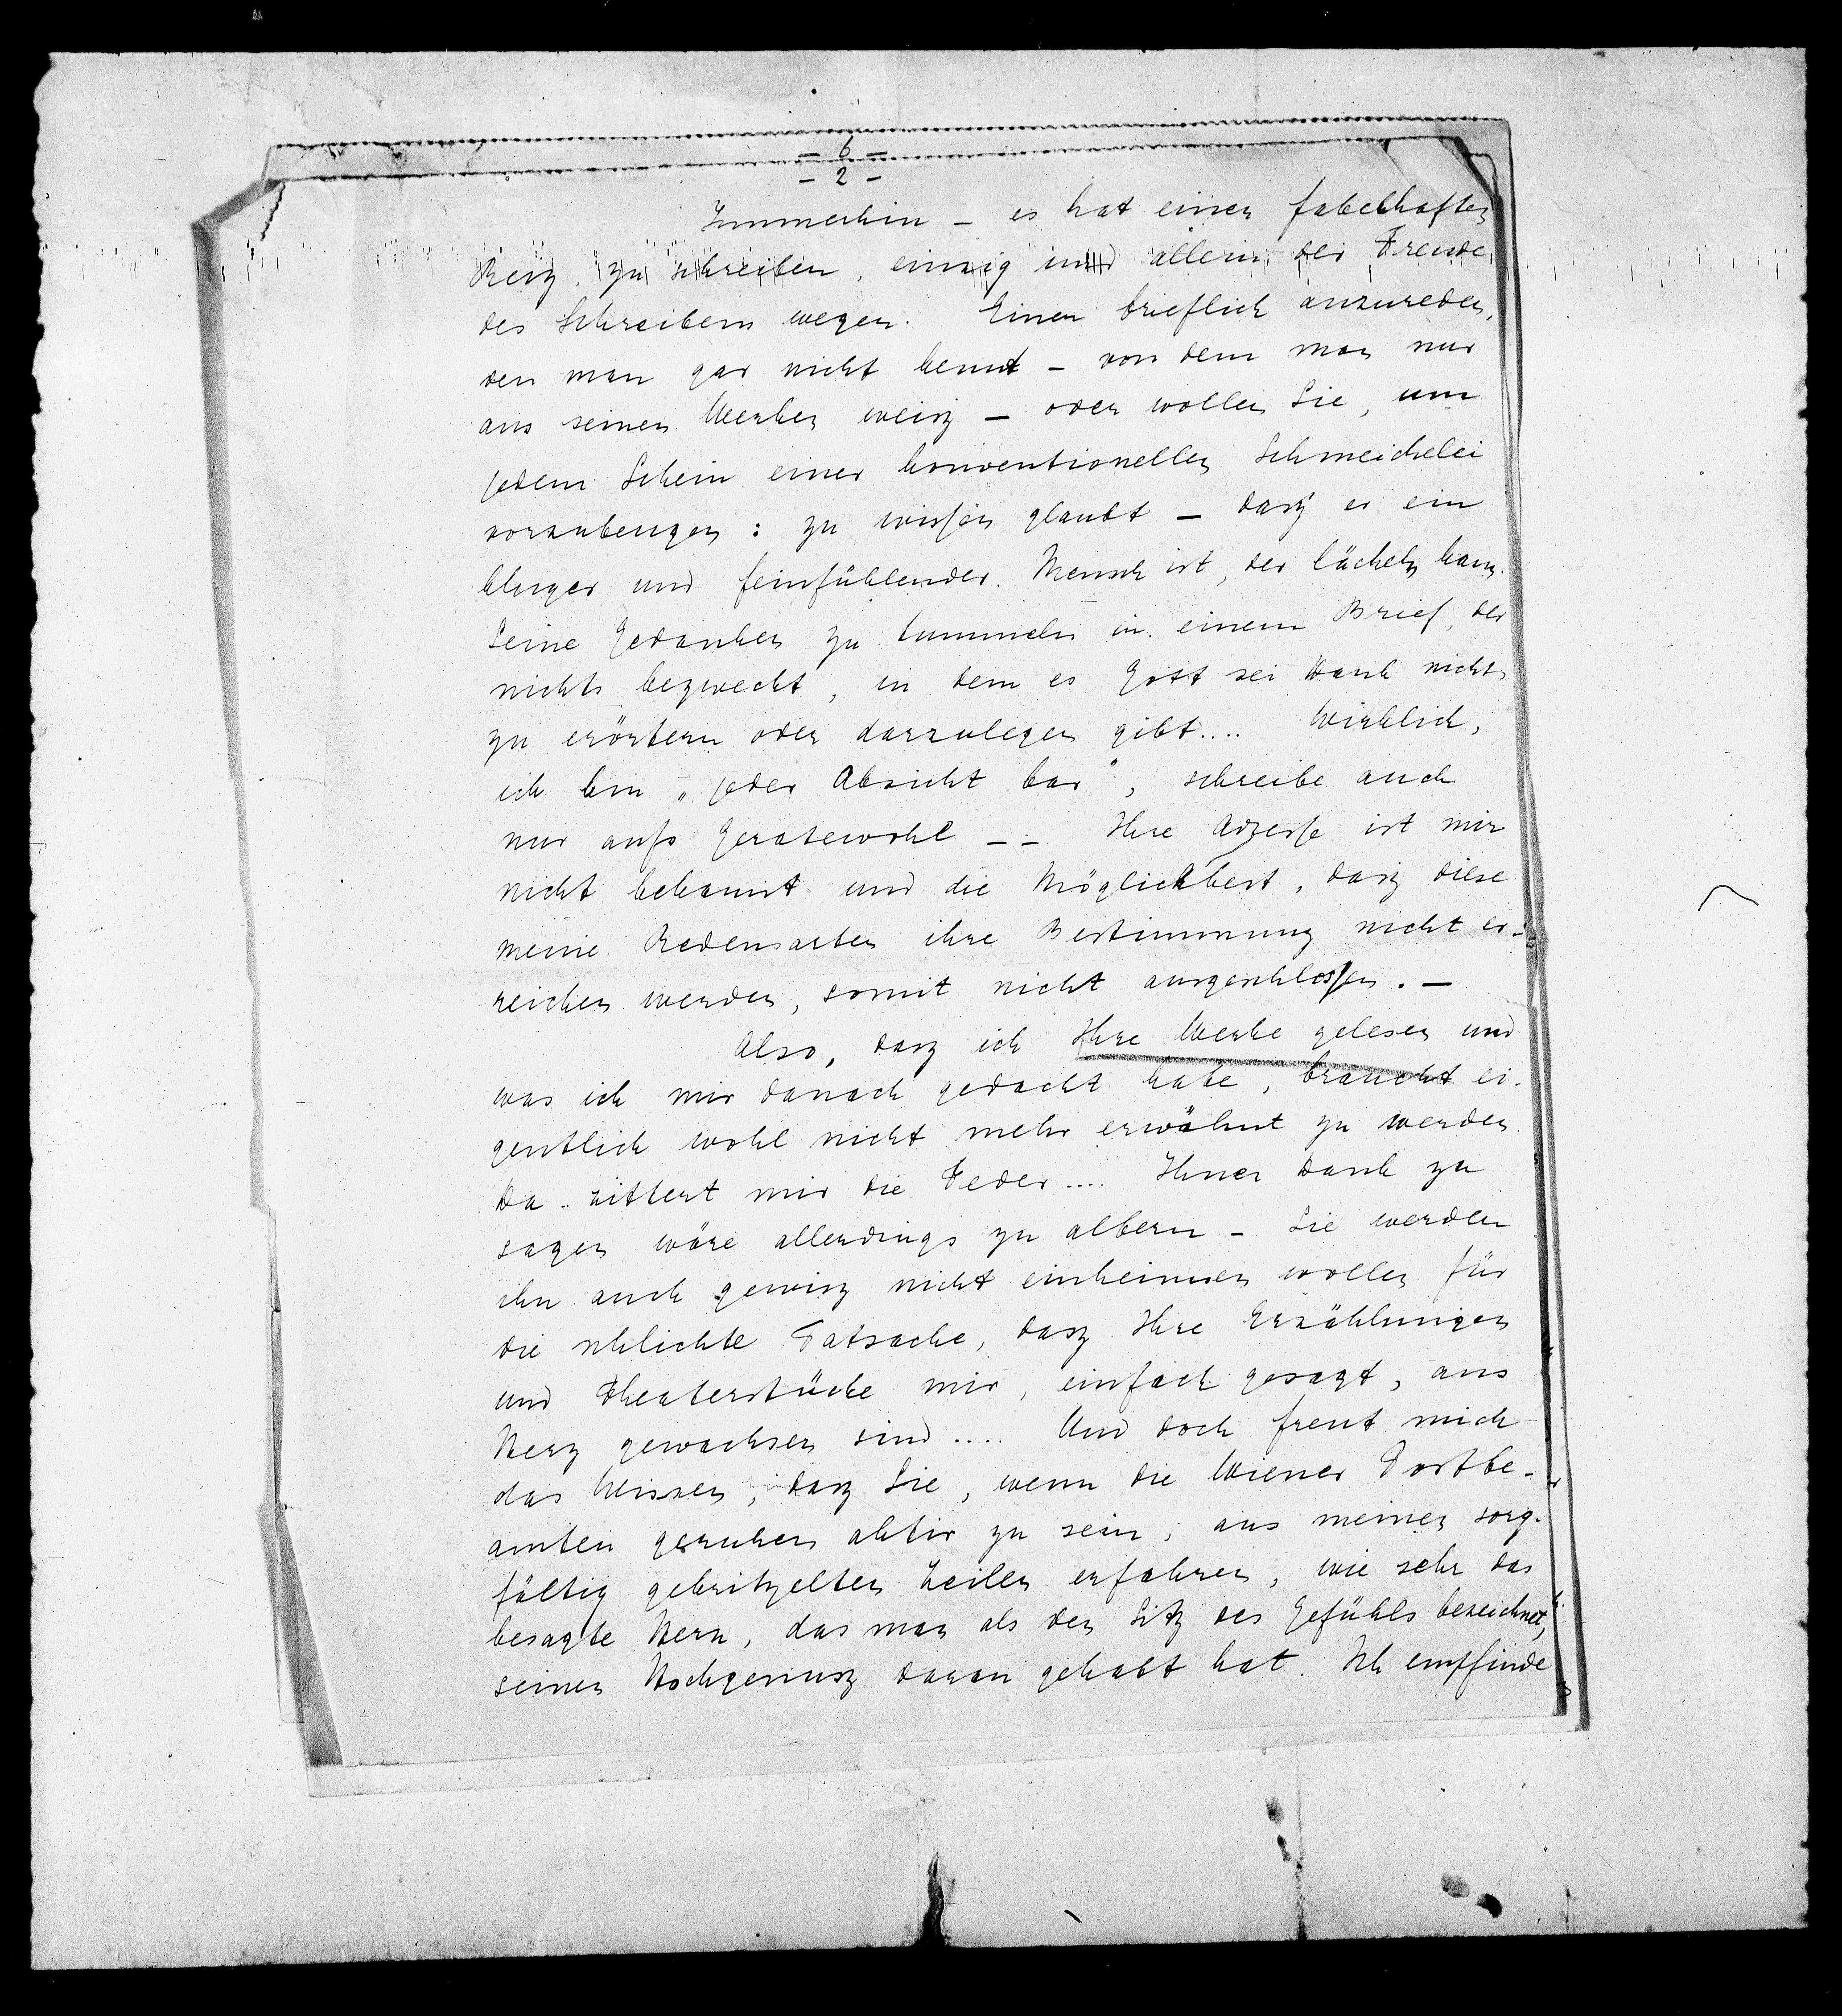 - 6 -
- 2 -
Immerhin - es hat einen fabelhaften
Reiz, zu schreiben, einzig und allein der Freude
des Schreibens wegen. Einen brieflich anzureden,
den man gar nicht kennt - von dem man nur
aus seinen Werken weisz - oder wollen Sie, um
jedem Schein einer konventionellen Schmeichelei
vorzubeugen: zu wissen glaubt - dasz er ein
kluger und feinfühlender Mensch ist, der lächeln kann.
Seine Gedanken zu tummeln in einem Brief, der
nichts bezweckt, in dem es Gott sei Dank nichts
zu erörtern oder darzulegen gibt.... Wirklich,
ich bin „jeder Absicht bar", schreibe auch
nur aufs Geratewohl -- Ihre Adresse ist mir
nicht bekannt und die Möglichkeit, dasz diese
meine Redensarten ihre Bestimmung nicht er-
reichen werden, somit nicht ausgeschlossen. -
Also, dasz ich Ihre Werke gelesen und
was ich mir danach gedacht habe, braucht ei-
gentlich wohl nicht mehr erwähnt zu werden.
Da .. zittert mir die Feder.... Ihnen Dank zu
sagen wäre allerdings zu albern - Sie werden
ihn auch gewisz nicht einheimsen wollen für
die schlichte Tatsache, dasz Ihre Erzählungen
und Theaterstücke mir, einfach gesagt, ans
Herz gewachsen sind.... Und doch freut mich
das Wissen, dasz Sie, wenn die Wiener Postbe-
amten geruhen aktiv zu sein, aus meinen sorg-
fältig gekritzelten Zeilen erfahren, wie sehr das
besagte Herz, das man als den Sitz des Gefühls bezeichnet,
seinen Hochgenusz daran gehabt hat. Ich empfinde